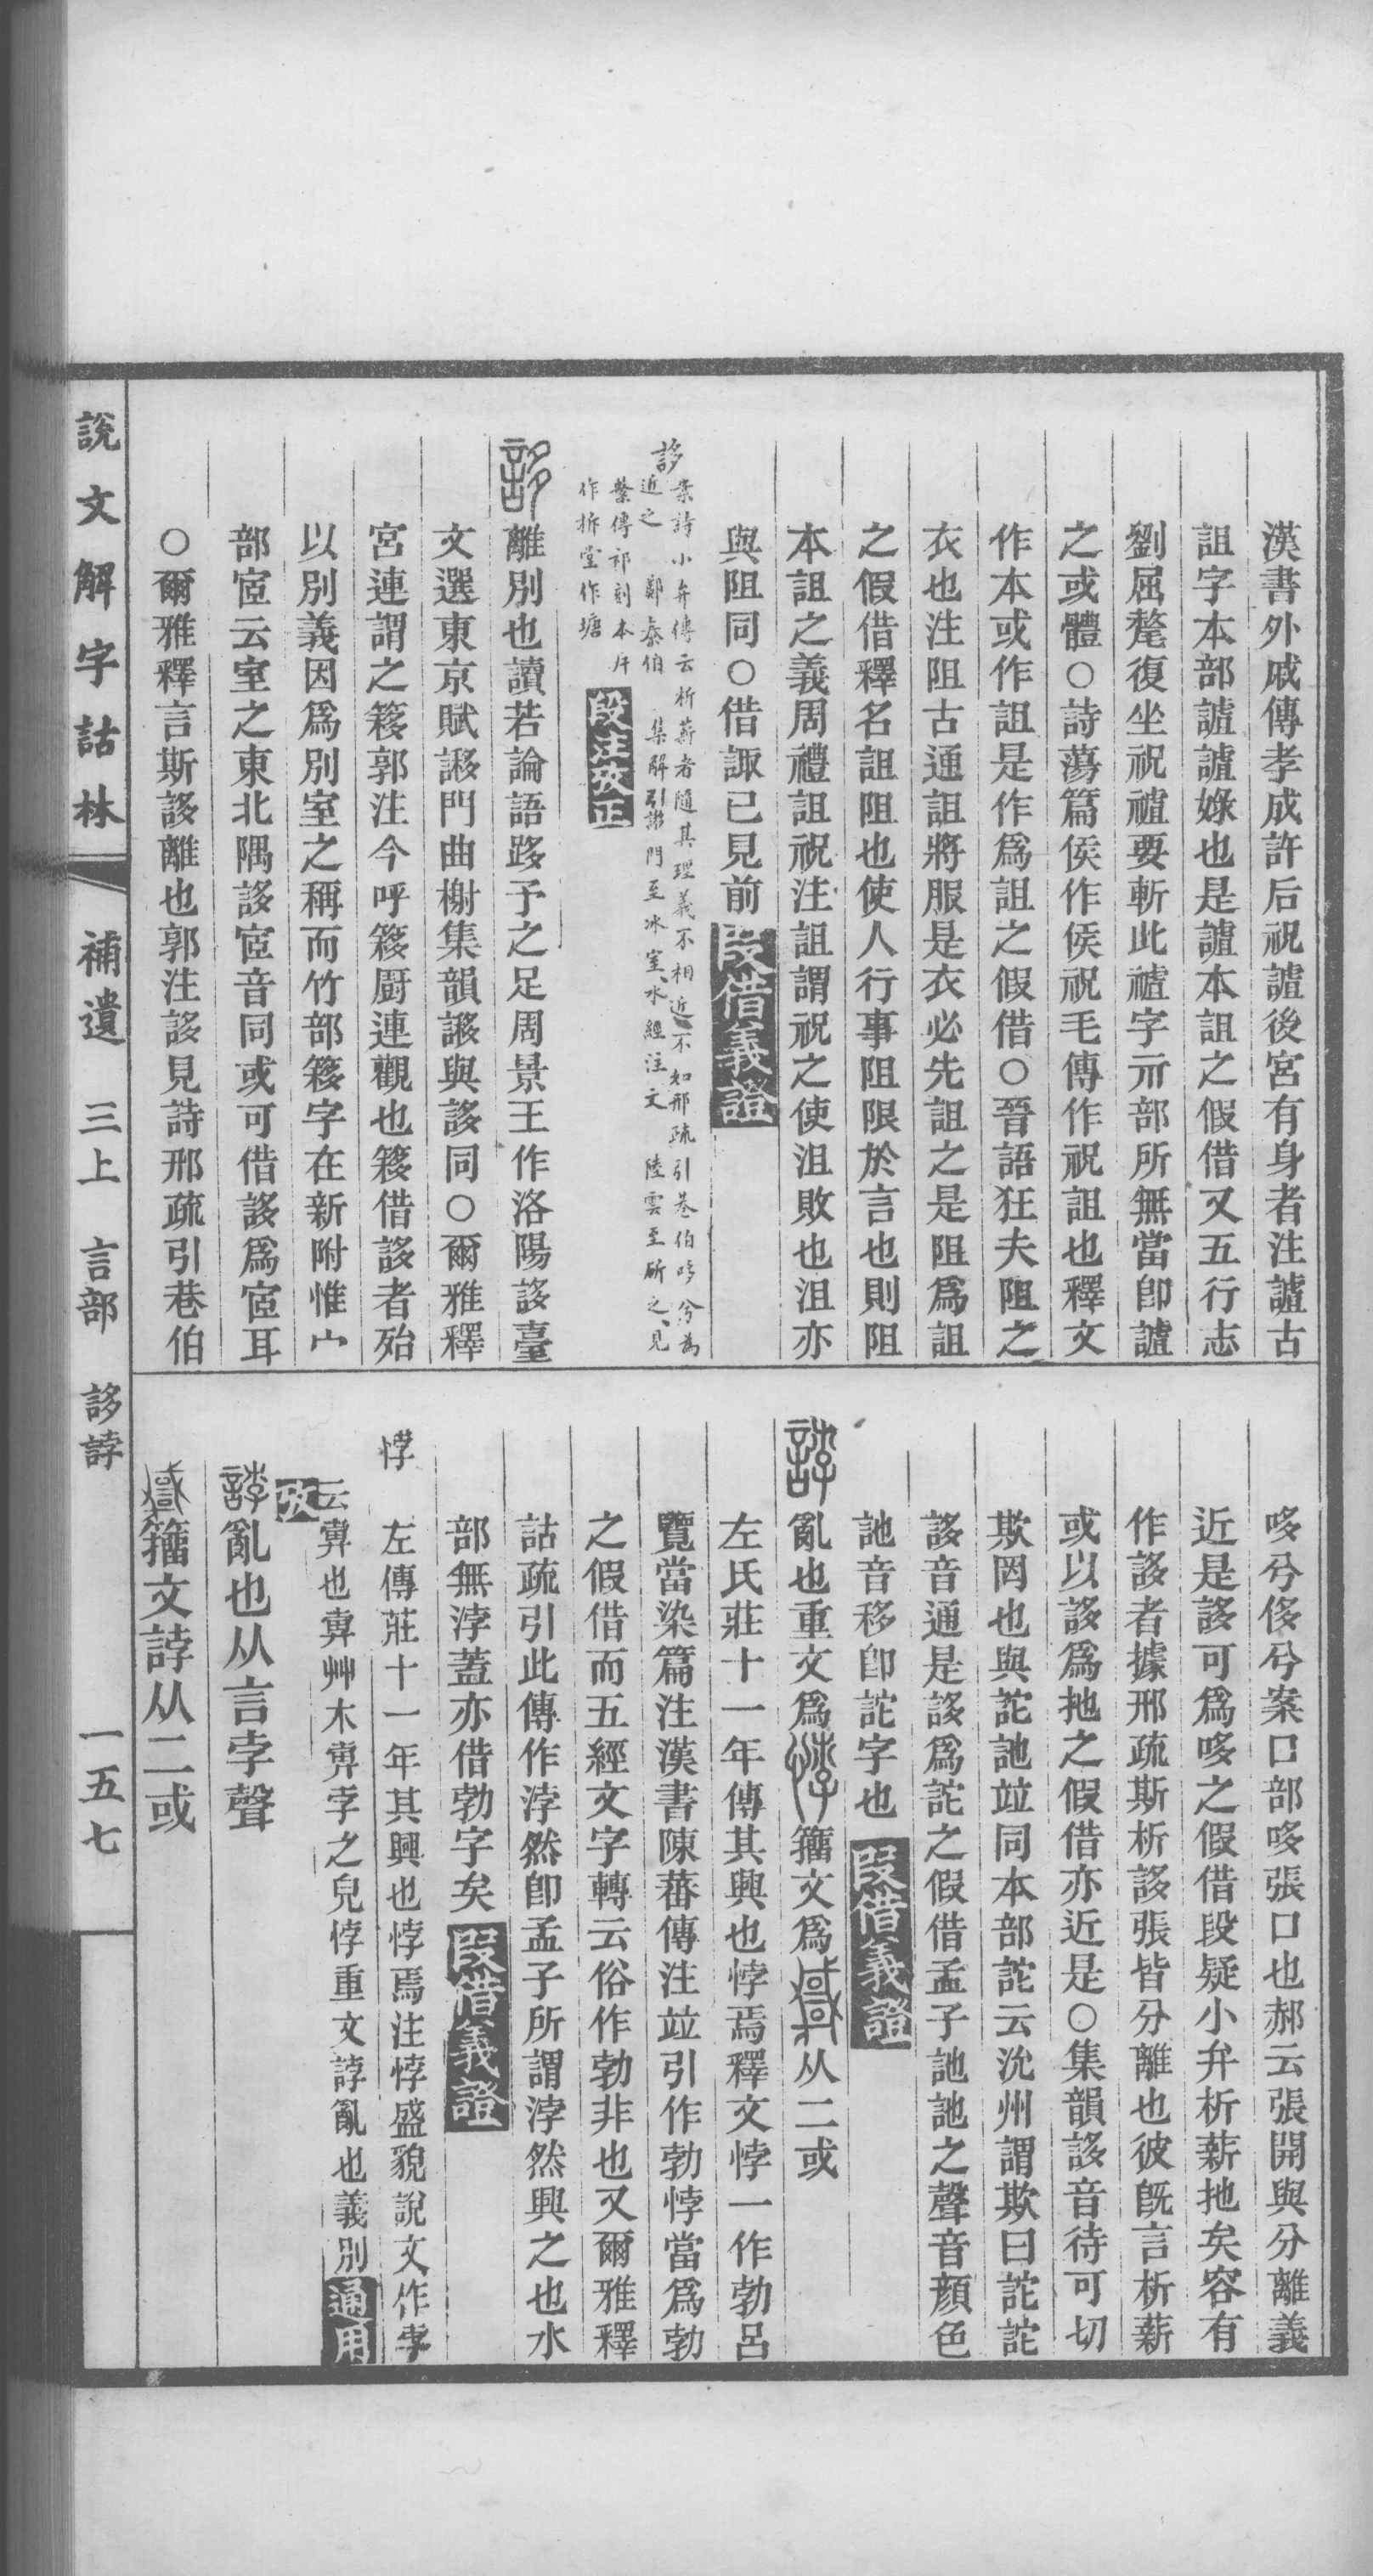 漢書外戚傳孝成許后祝謯後宮有身者注謯古
詛字本部謯謯娽也是謯本詛之假借又五行志
劉屈氂復坐祝䄍要斬此䄍字示部所無當卽謯
之或體○詩蕩篇侯作侯祝毛傳作祝詛也釋文
作本或作詛是作爲詛之假借○晉語狂夫阻之
衣也注阻古通詛將服是衣必先詛之是阻爲詛
之假借釋名詛阻也使人行事阻限於言也則阻
本詛之義周禮詛祝注詛謂祝之使沮敗也沮亦
與阻同○借諏已見前叚借義證
誃案詩小弁傳云析薪者隨其理義不相近不如邢疏引巷伯哆兮爲
近之 鄭泰伯 集解引謻門至冰室、水經注文 陸雲至斫之、見
繫傳祁刻本斤
作析堂作塘 段注攷正
誃離別也讀若論語跢予之足周景王作洛陽誃臺
文選東京賦謻門曲榭集韻謻與誃同○爾雅釋
宮連謂之簃郭注今呼簃厨連觀也簃借誃者殆
以別義因爲別室之稱而竹部簃字在新附惟宀
部宧云室之東北隅誃宧音同或可借誃爲宧耳
○爾雅釋言斯誃離也郭注誃見詩邢疏引巷伯
哆兮侈兮案口部哆張口也郝云張開與分離義
近是誃可爲哆之假借段疑小弁析薪扡矣容有
作誃者據邢疏斯析誃張皆分離也彼旣言析薪
或以誃爲扡之假借亦近是○集韻誃音待可切
欺罔也與詑訑竝同本部詑云沇州謂欺曰詑詑
誃音通是誃爲詑之假借孟子訑訑之聲音顏色
訑音移卽詑字也叚借義證
誖亂也重文爲悖籒文爲𢨋从二或
左氏莊十一年傳其興也悖焉釋文悖一作勃呂
覽當染篇注漢書陳蕃傳注竝引作勃悖當爲勃
之假借而五經文字轉云俗作勃非也又爾雅釋
詁疏引此傳作浡然卽孟子所謂浡然興之也水
部無浡蓋亦借勃字矣叚借義證
悖 左傳莊十一年其興也悖焉注悖盛貌說文作孛
云𡴀也𡴀艸木𡴀孛之皃悖重文誖亂也義別通用
攷
誖亂也从言孛聲
𢨋籒文誖从二或
說文解字詁林 補遺 三上 言部 誃誖 一五七